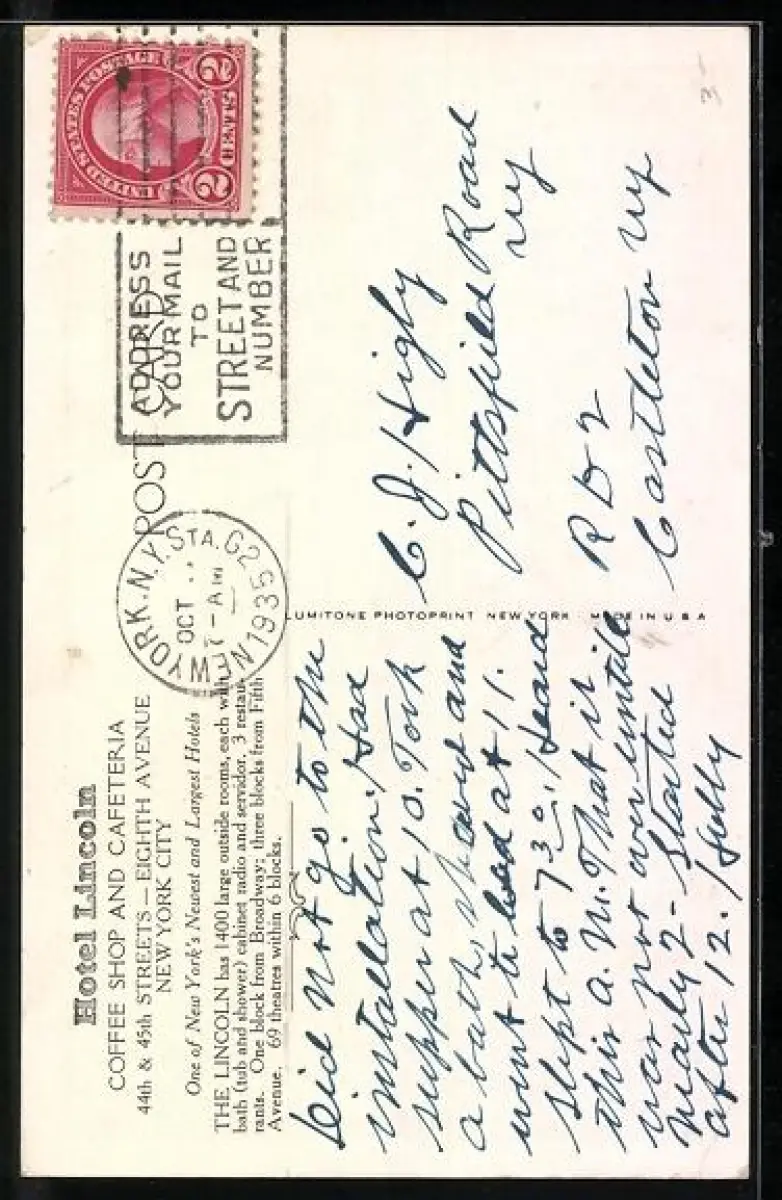 Hotel Lincoln
COFFEE SHOP AND CAFETERIA
44th & 45th STREETS — EIGHTH AVENUE
NEW YORK CITY
One of New York's Newest and Largest Hotels
THE LINCOLN has 1400 large outside rooms, each with
bath (tub and shower) cabinet radio and servidor. 3 restau-
rants. One block from Broadway; three blocks from Fifth
Avenue. 69 theatres within 6 blocks.
POST CARD
NEW YORK, N.Y. STA. G2
OCT
7-AM
1935
ADDRESS
YOUR MAIL
TO
STREET AND
NUMBER
UNITED STATES POSTAGE
2 CENTS 2
LUMITONE PHOTOPRINT NEW YORK · MADE IN U S A
Did not go to the
installation. Had
supper at 10. Took
a bath, shaved and
went to bed at 11.
Slept to 7 30. Heard
this a.m. That it
was not over untill
nearly 2 - Started
after 12. Hubby
C. J. Higby
Pittsfield Road
ny
R D 2
Castleton ny
3